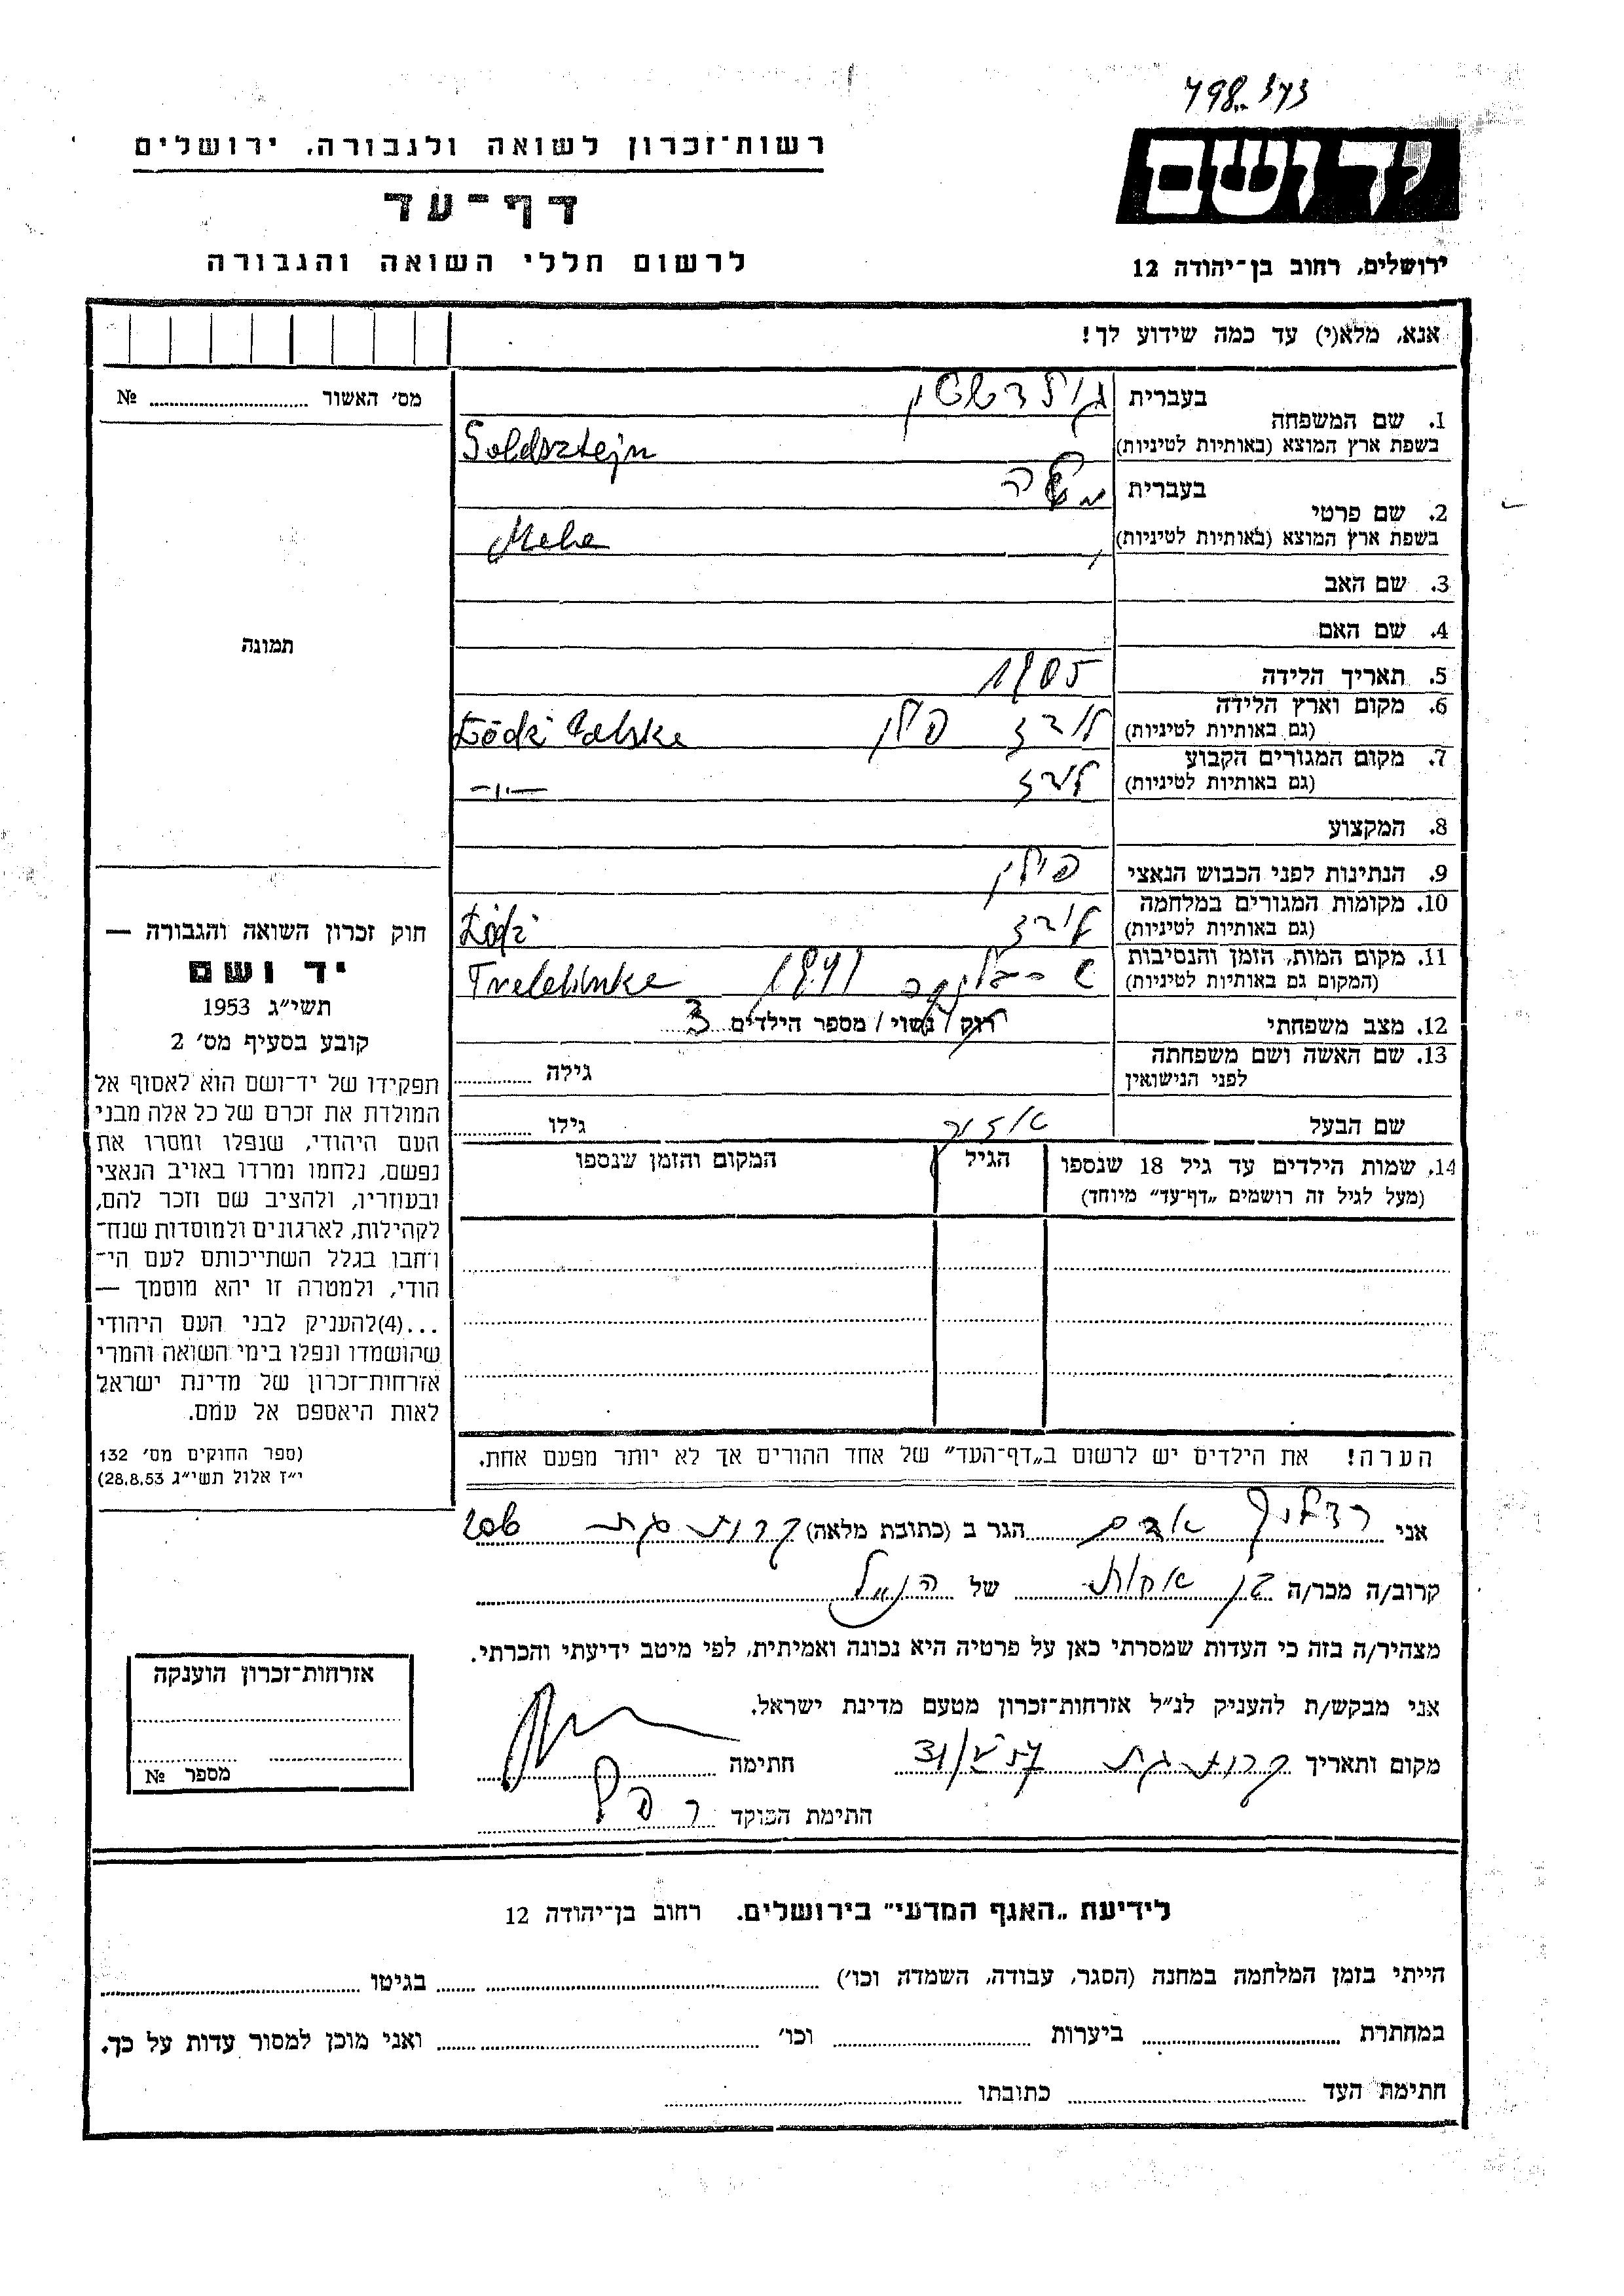 498373
יד ושם
רשות־זכרון לשואה ולגבורה, ירושלים
דף־עד
לרשום חללי השואה והגבורה
ירושלים, רחוב בן־יהודה 12
אנא, מלא(י) עד כמה שידוע לך!
מס׳ האשור № 
תמונה
1. שם המשפחה
בעברית
בשפת ארץ המוצא (באותיות לטיניות) Goldsztejn
2. שם פרטי
בעברית
בשפת ארץ המוצא (באותיות לטיניות)
3. שם האב
4. שם האם
5. תאריך הלידה 1905
6. מקום וארץ הלידה
(גם באותיות לטיניות) לודז פולין Łódź Polska
7. מקום המגורים הקבוע
(גם באותיות לטיניות) לודז —"—
8. המקצוע
9. הנתינות לפני הכבוש הנאצי פולין
10. מקומות המגורים במלחמה
(גם באותיות לטיניות) לודז Łódź
11. מקום המות, הזמן והנסיבות
(המקום גם באותיות לטיניות) 1941
12. מצב משפחתי רוק / נשוי / מספר הילדים 3
13. שם האשה ושם משפחתה
לפני הנישואין
גילה
שם הבעל
גילו
14. שמות הילדים עד גיל 18 שנספו
(מעל לגיל זה רושמים „דף־עד״ מיוחד)
הגיל
המקום והזמן שנספו
הערה! את הילדים יש לרשום ב„דף־העד״ של אחד ההורים אך לא יותר מפעם אחת.
חוק זכרון השואה והגבורה —
יד ושם
תשי״ג 1953
קובע בסעיף מס׳ 2
תפקידו של יד־ושם הוא לאסוף אל
המולדת את זכרם של כל אלה מבני
העם היהודי, שנפלו ומסרו את
נפשם, נלחמו ומרדו באויב הנאצי
ובעוזריו, ולהציב שם וזכר להם,
לקהילות, לארגונים ולמוסדות שנח־
רחבו בגלל השתייכותם לעם הי־
הודי, ולמטרה זו יהא מוסמך —
...(4)להעניק לבני העם היהודי
שהושמדו ונפלו בימי השואה והמרי
אזרחות־זכרון של מדינת ישראל
לאות היאספם אל עמם.
(ספר החוקים מס׳ 132
י״ז אלול תשי״ג 28.8.53)
אני אדם הגר ב (כתובת מלאה) קרית גת
קרוב/ה מכר/ה בן אחות של הנ״ל
מצהיר/ה בזה כי העדות שמסרתי כאן על פרטיה היא נכונה ואמיתית, לפי מיטב ידיעתי והכרתי.
אני מבקש/ת להעניק לנ״ל אזרחות־זכרון מטעם מדינת ישראל.
מקום ותאריך קרית גת חתימה
חתימת הפוקד
אזרחות־זכרון הוענקה
מספר №
לידיעת „האגף המדעי״ בירושלים. רחוב בן־יהודה 12
הייתי בזמן המלחמה במחנה (הסגר, עבודה, השמדה וכו׳) בגיטו
במחתרת ביערות וכו׳ ואני מוכן למסור עדות על כך.
חתימת העד כתובתו